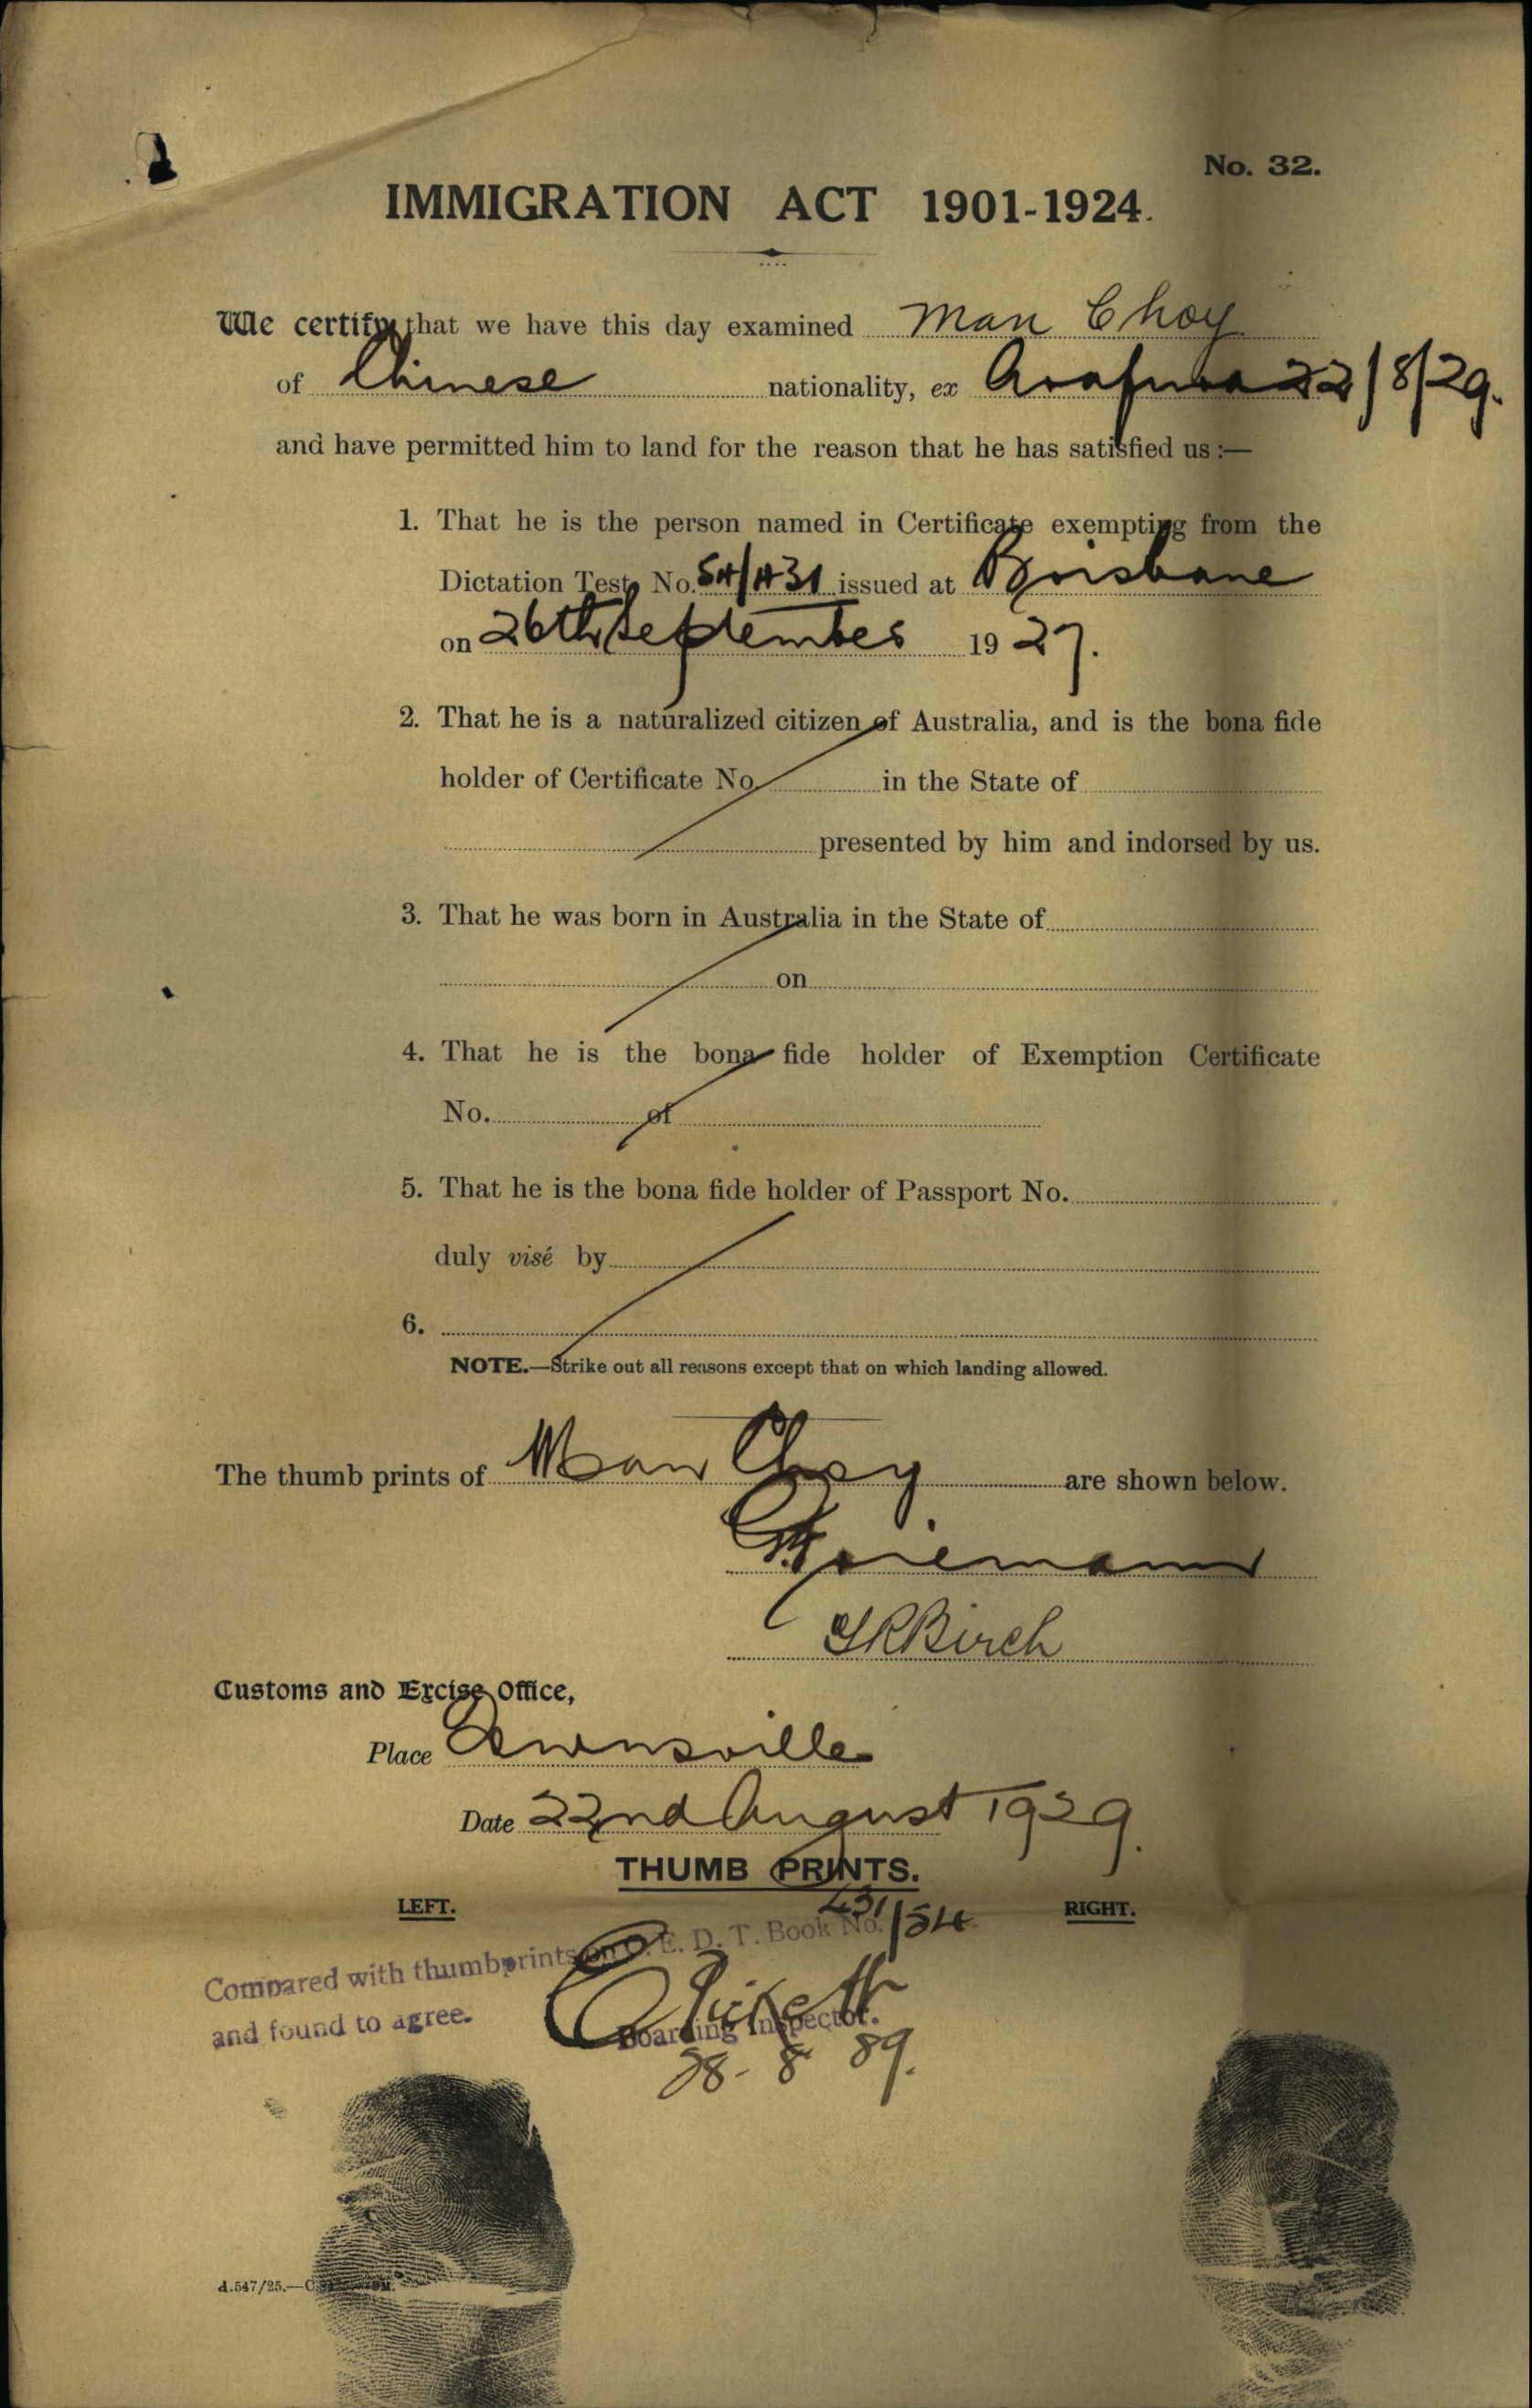 No. 32.
IMMIGRATION ACT 1901-1924.
We certify that we have this day examined Man Choy
of Chinese nationality, ex Arafura 22/8/29.
and have permitted him to land for the reason that he has satisfied us :—
1. That he is the person named in Certificate exempting from the
Dictation Test, No. issued at Brisbane
on 26th September 1927.
2. That he is a naturalized citizen of Australia, and is the bona fide
holder of Certificate No. in the State of
presented by him and indorsed by us.
3. That he was born in Australia in the State of
on
4. That he is the bona fide holder of Exemption Certificate
No. of
5. That he is the bona fide holder of Passport No.
duly visé by
6.
NOTE.—Strike out all reasons except that on which landing allowed.
The thumb prints of Man Choy are shown below.
Birch
Customs and Excise Office,
Place Townsville
Date 22nd August 1929.
THUMB PRINTS.
LEFT.
RIGHT.
Compared with thumbprints on C. E. D. T. Book No. 431/54
and found to agree.
Boarding Inspector.
28- 8